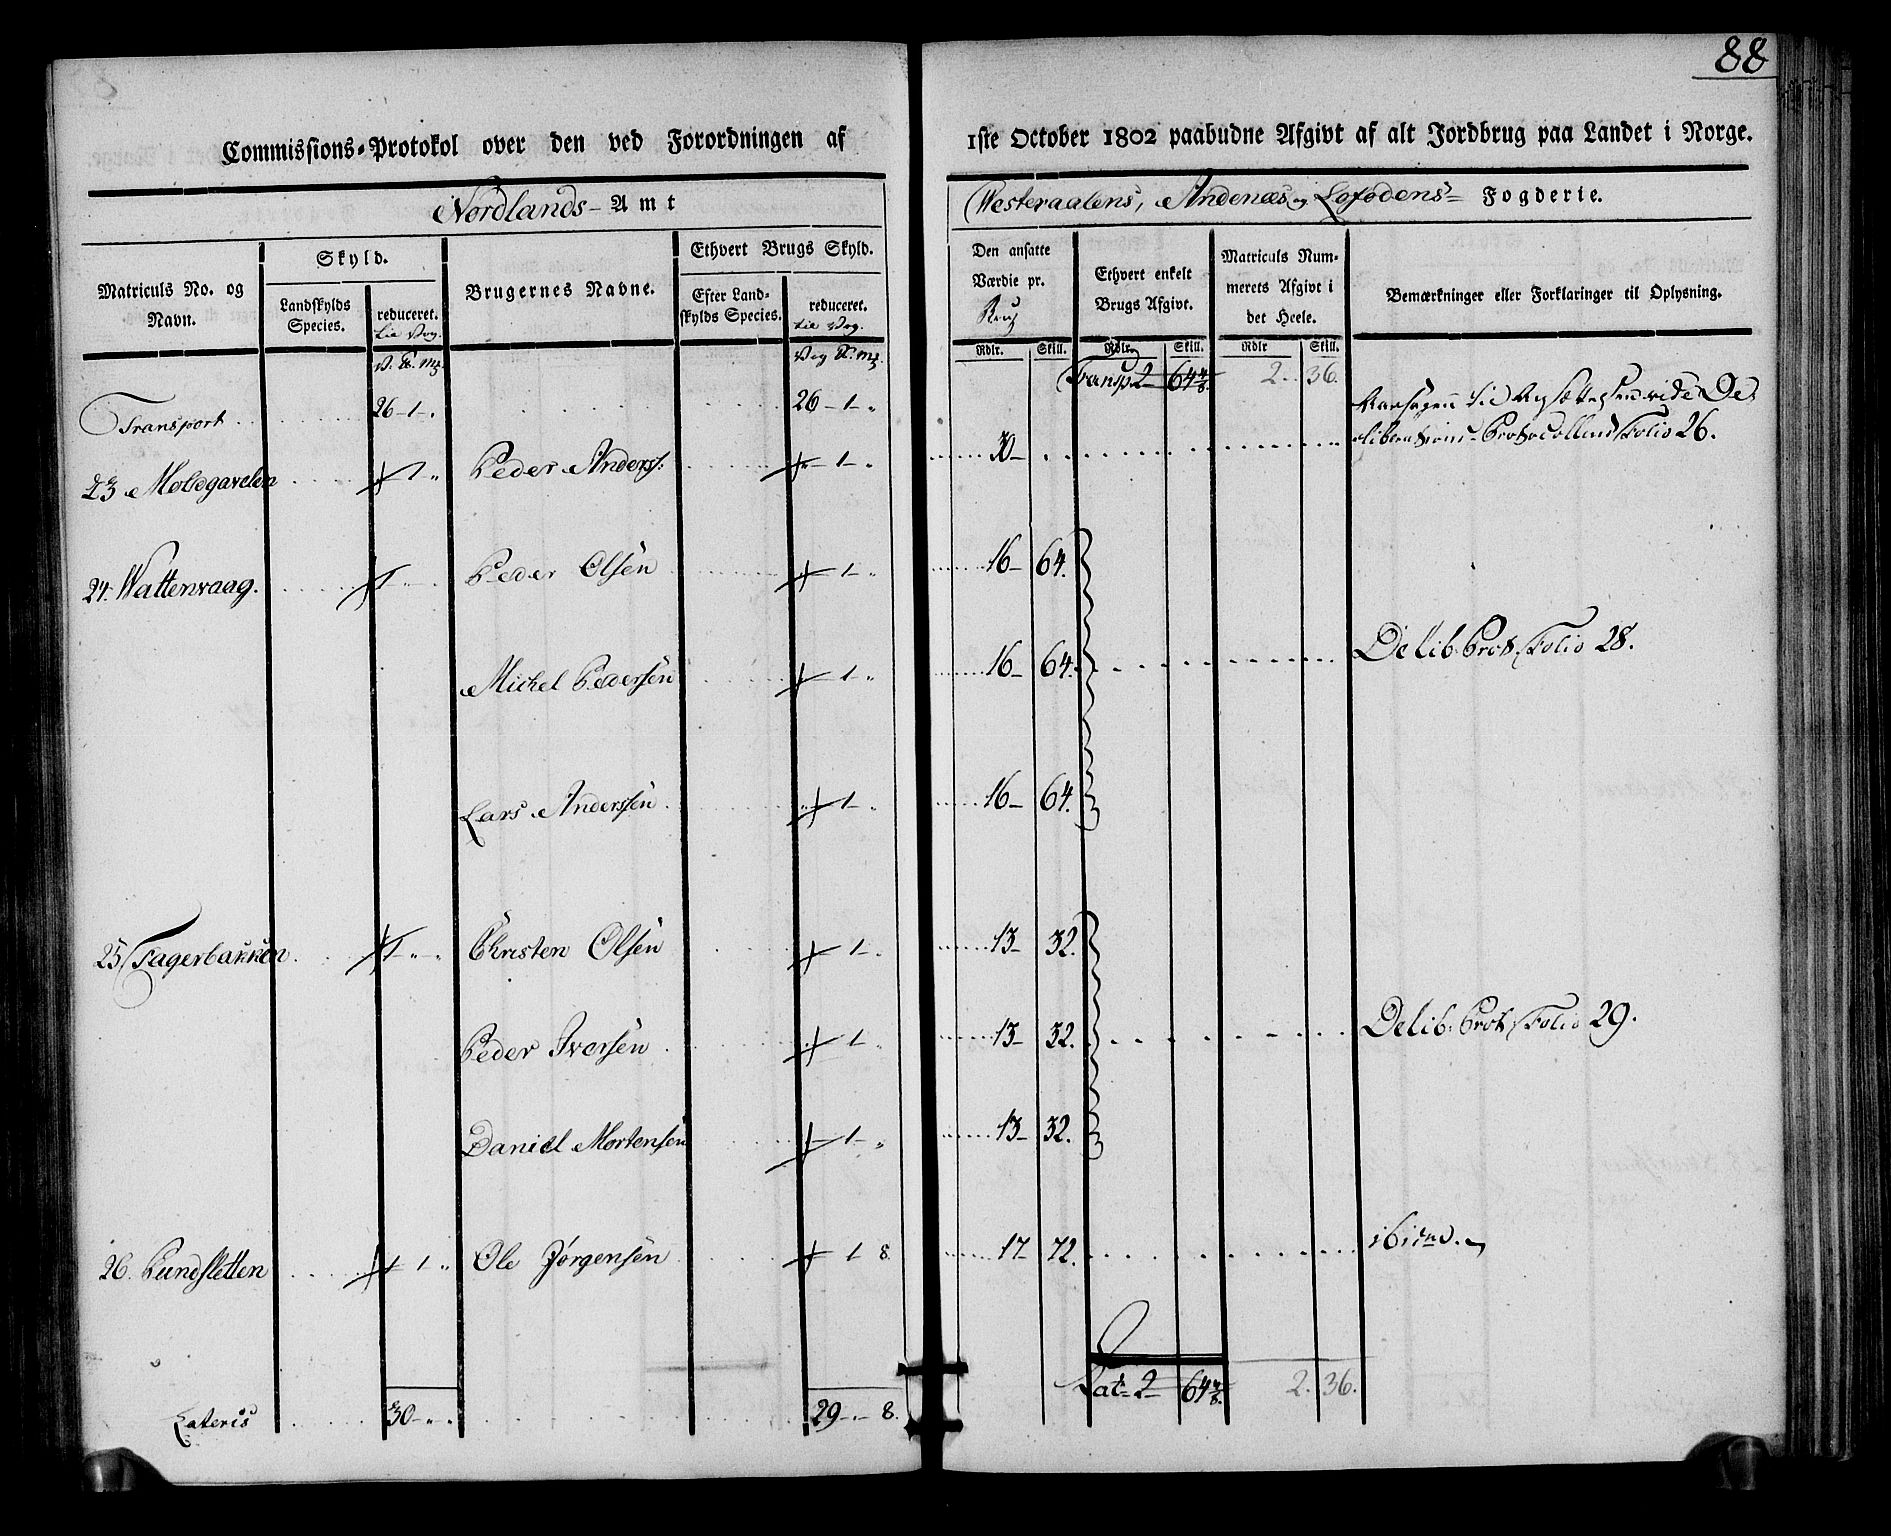 88
Commissions-Protokol over den ved Forordningen af 1ste October 1802 paabudne Afgivt af alt Jordbrug paa Landet i Norge.
Nordlands-Amt Westeraalens, Andenæs og Lofodens- Fogderie.
Matriculs No. og Navn.
Skyld.
Landskylds Species.
reduceret. til Vog.
Brugernes Navne.
Ethvert Brugs Skyld.
Efter Landskylds Species.
reduceret. til Vog.
Den ansatte Værdie pr.
Ethvert enkelt Brugs Afgivt.
Matriculs Nummerets Afgivt i det Heele.
Bemærkninger eller Forklaringer til Oplysning.
Rdlr. Skill. Rdlr. Skill. Rdlr Skill.
Transport 26-1-. 26-1-. Transp. 2 64 4/8. 2. 36.
23 Molegavelen 1 Peder Anders: 1 30 Aarsagen til Nysættelsen vide Deliberations-Protocollens Folio 26.
24. Wattenvaag. 1 Peder Olsen 1 16 64.
Michel Pedersen 1 16 64. Delib. Prot. Folio 28.
Lars Anderssen 1 16 64.
25 Fagerbakken 1 Christen Olsen 1 13 32.
Peder Iversen 1 13 32. Delib. Prot. Folio 29.
Daniel Mortensen 1 13 32.
26. Pundsletten 1 Ole Jørgensen 1 8 17 72. ibidem.
Lateris 30 29 8. Lat. 2 64 4/8. 2. 36.